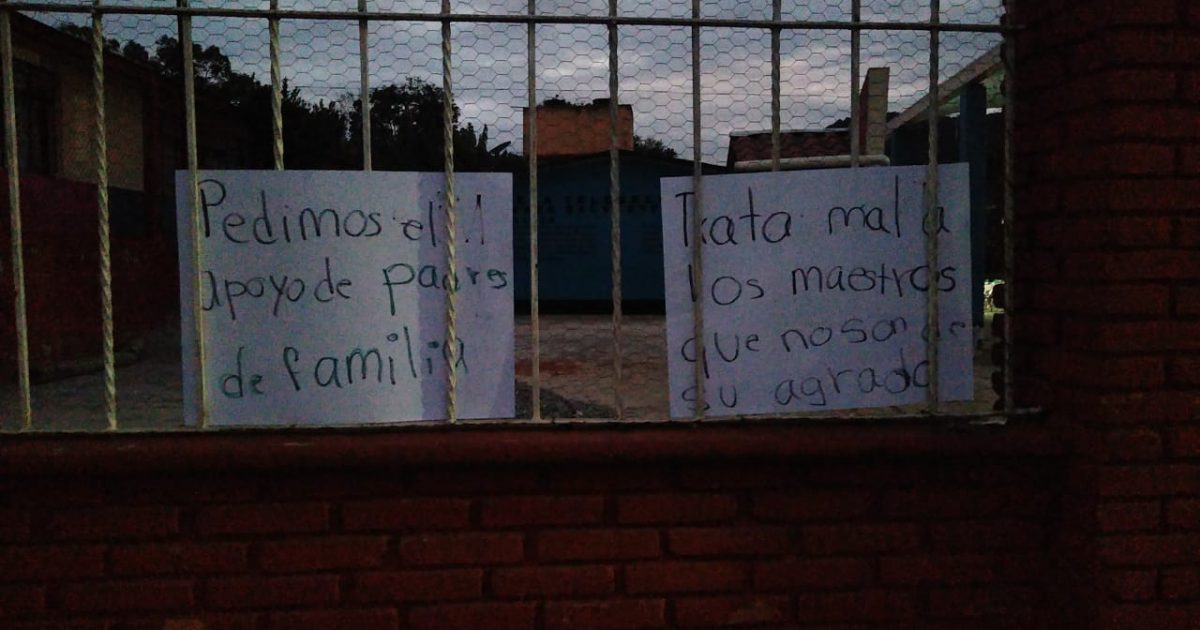 Pedimos el
apoyo de padres
de familia
Trata mal a
los maestros
que no son de
su agrado